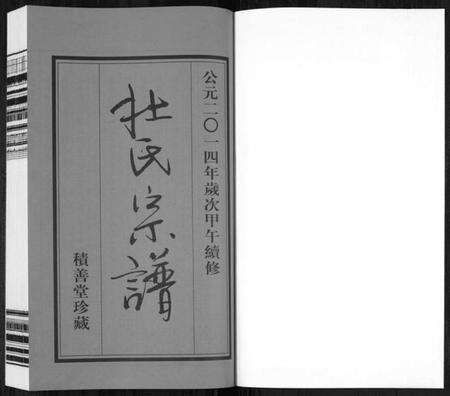 公元二〇一四年歲次甲午續修
杜氏宗譜
積善堂珍藏